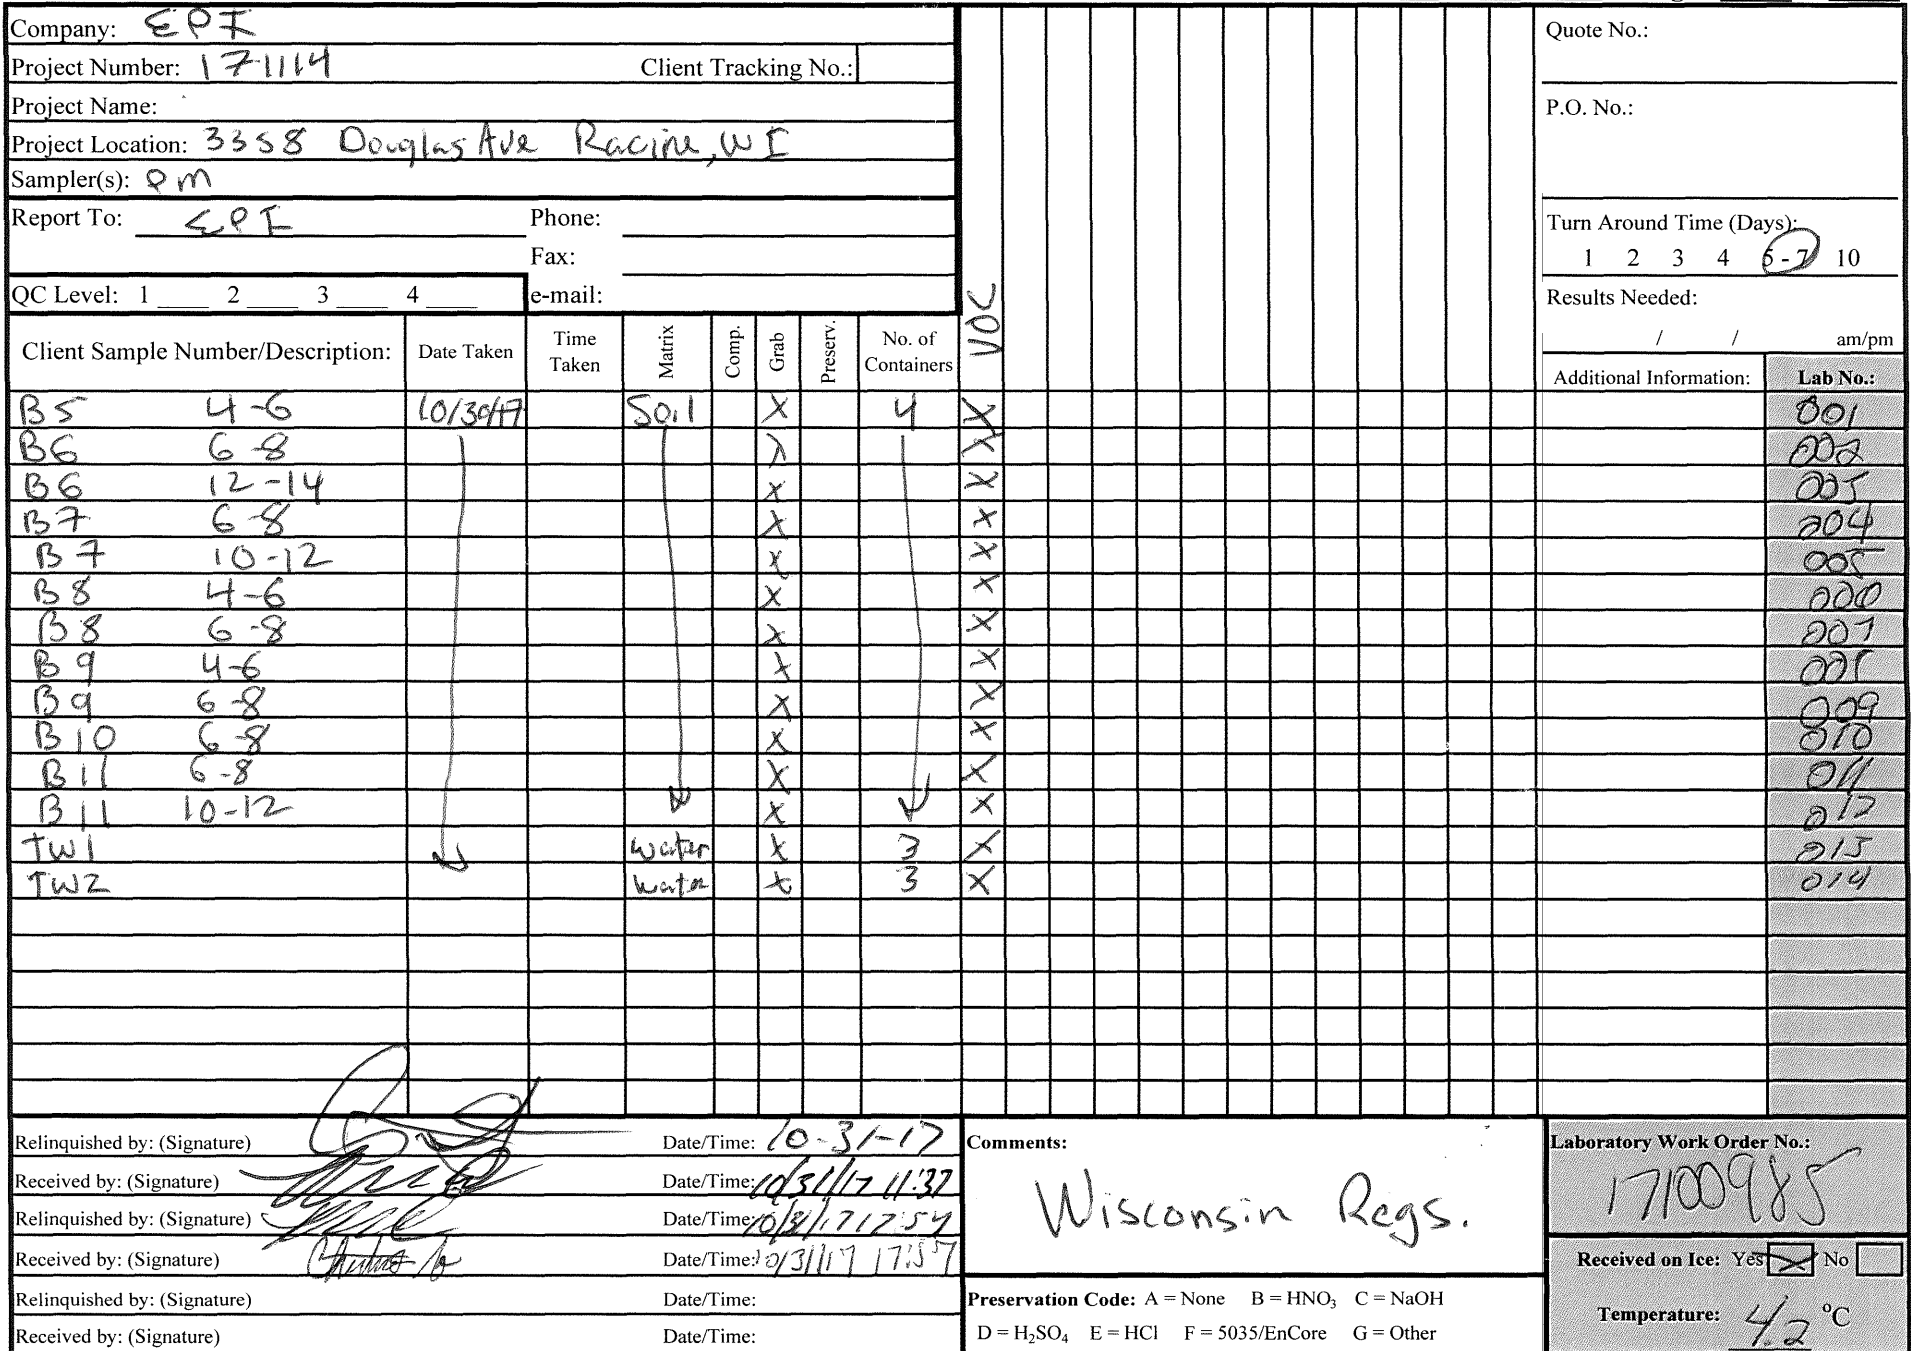 Company: EPI
Project Number: 171114 Client Tracking No.:
Project Name:
Project Location: 3358 Douglas Ave Racine, WI
Sampler(s): PM
Report To: EPI Phone:
Fax:
QC Level: 1 ____ 2 ____ 3 ____ 4 ____ e-mail:
Quote No.:
P.O. No.:
Turn Around Time (Days):
1 2 3 4 5-7 10
Results Needed:
/ / am/pm
Client Sample Number/Description: Date Taken Time Taken Matrix Comp. Grab Preserv. No. of Containers VOC Additional Information: Lab No.:
B5 4-6 10/30/17 Soil X 4 X 001
B6 6-8 X X 002
B6 12-14 X X 003
B7 6-8 X X 004
B7 10-12 X X 005
B8 4-6 X X 006
B8 6-8 X X 007
B9 4-6 X X 008
B9 6-8 X X 009
B10 6-8 X X 010
B11 6-8 X X 011
B11 10-12 X X 012
TW1 water X 3 X 013
TW2 water X 3 X 014
Relinquished by: (Signature) Date/Time: 10-31-17
Received by: (Signature) Date/Time: 10/31/17 11:37
Relinquished by: (Signature) Date/Time: 10/31/17 17:54
Received by: (Signature) Date/Time: 10/31/17 17:57
Relinquished by: (Signature) Date/Time:
Received by: (Signature) Date/Time:
Comments:
Wisconsin Regs.
Preservation Code: A = None B = HNO₃ C = NaOH
D = H₂SO₄ E = HCl F = 5035/EnCore G = Other
Laboratory Work Order No.:
17100985
Received on Ice: Yes X No
Temperature: 4.2 °C